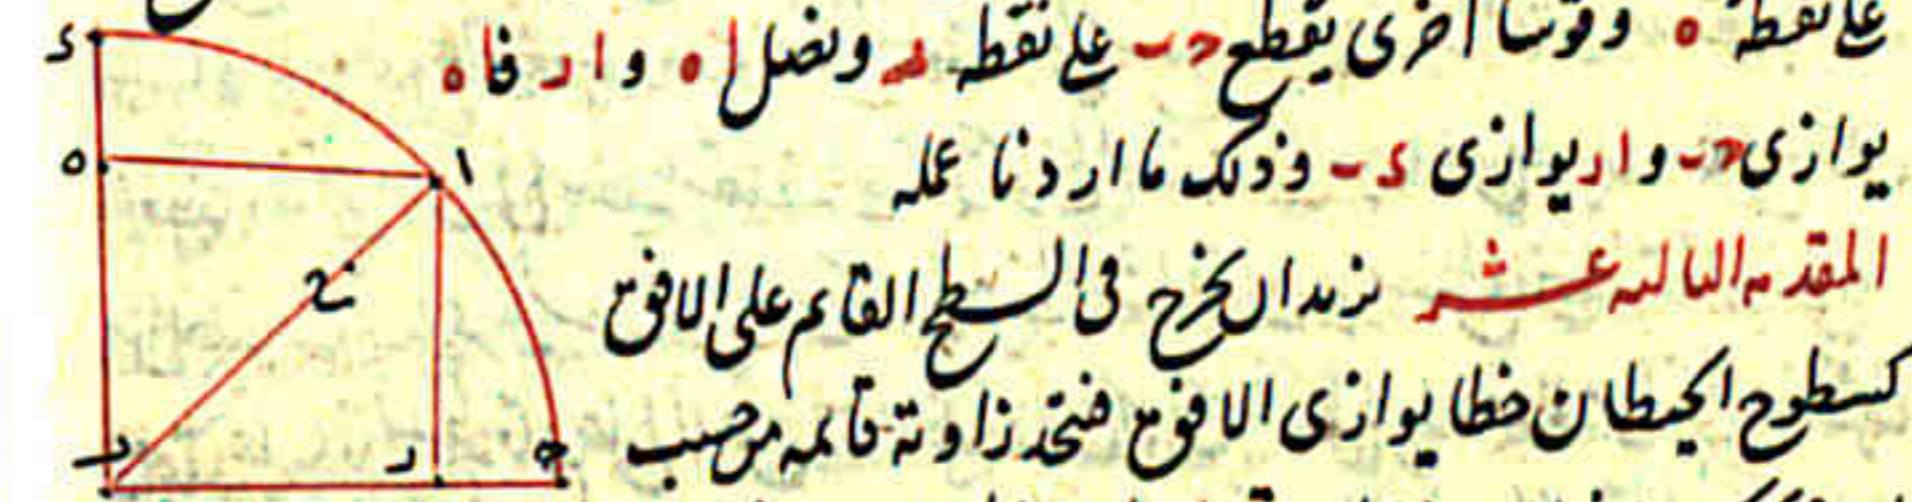 على نقطة ه وقوسا اخرى يقطع حب على نقطه ر ونصل اه و ار فاه
يوازى حب و ار يوازى ء ب وذلك ما اردنا عمله
المقدمه الثالثه عشر نريد ان نخرج فى السطح القايم على الافق
كسطوح الحيطان خطا يوازى الافق فنتخذ زاوية قايمه من خشب
ء
ه
ا
ح
ب
ر
ح